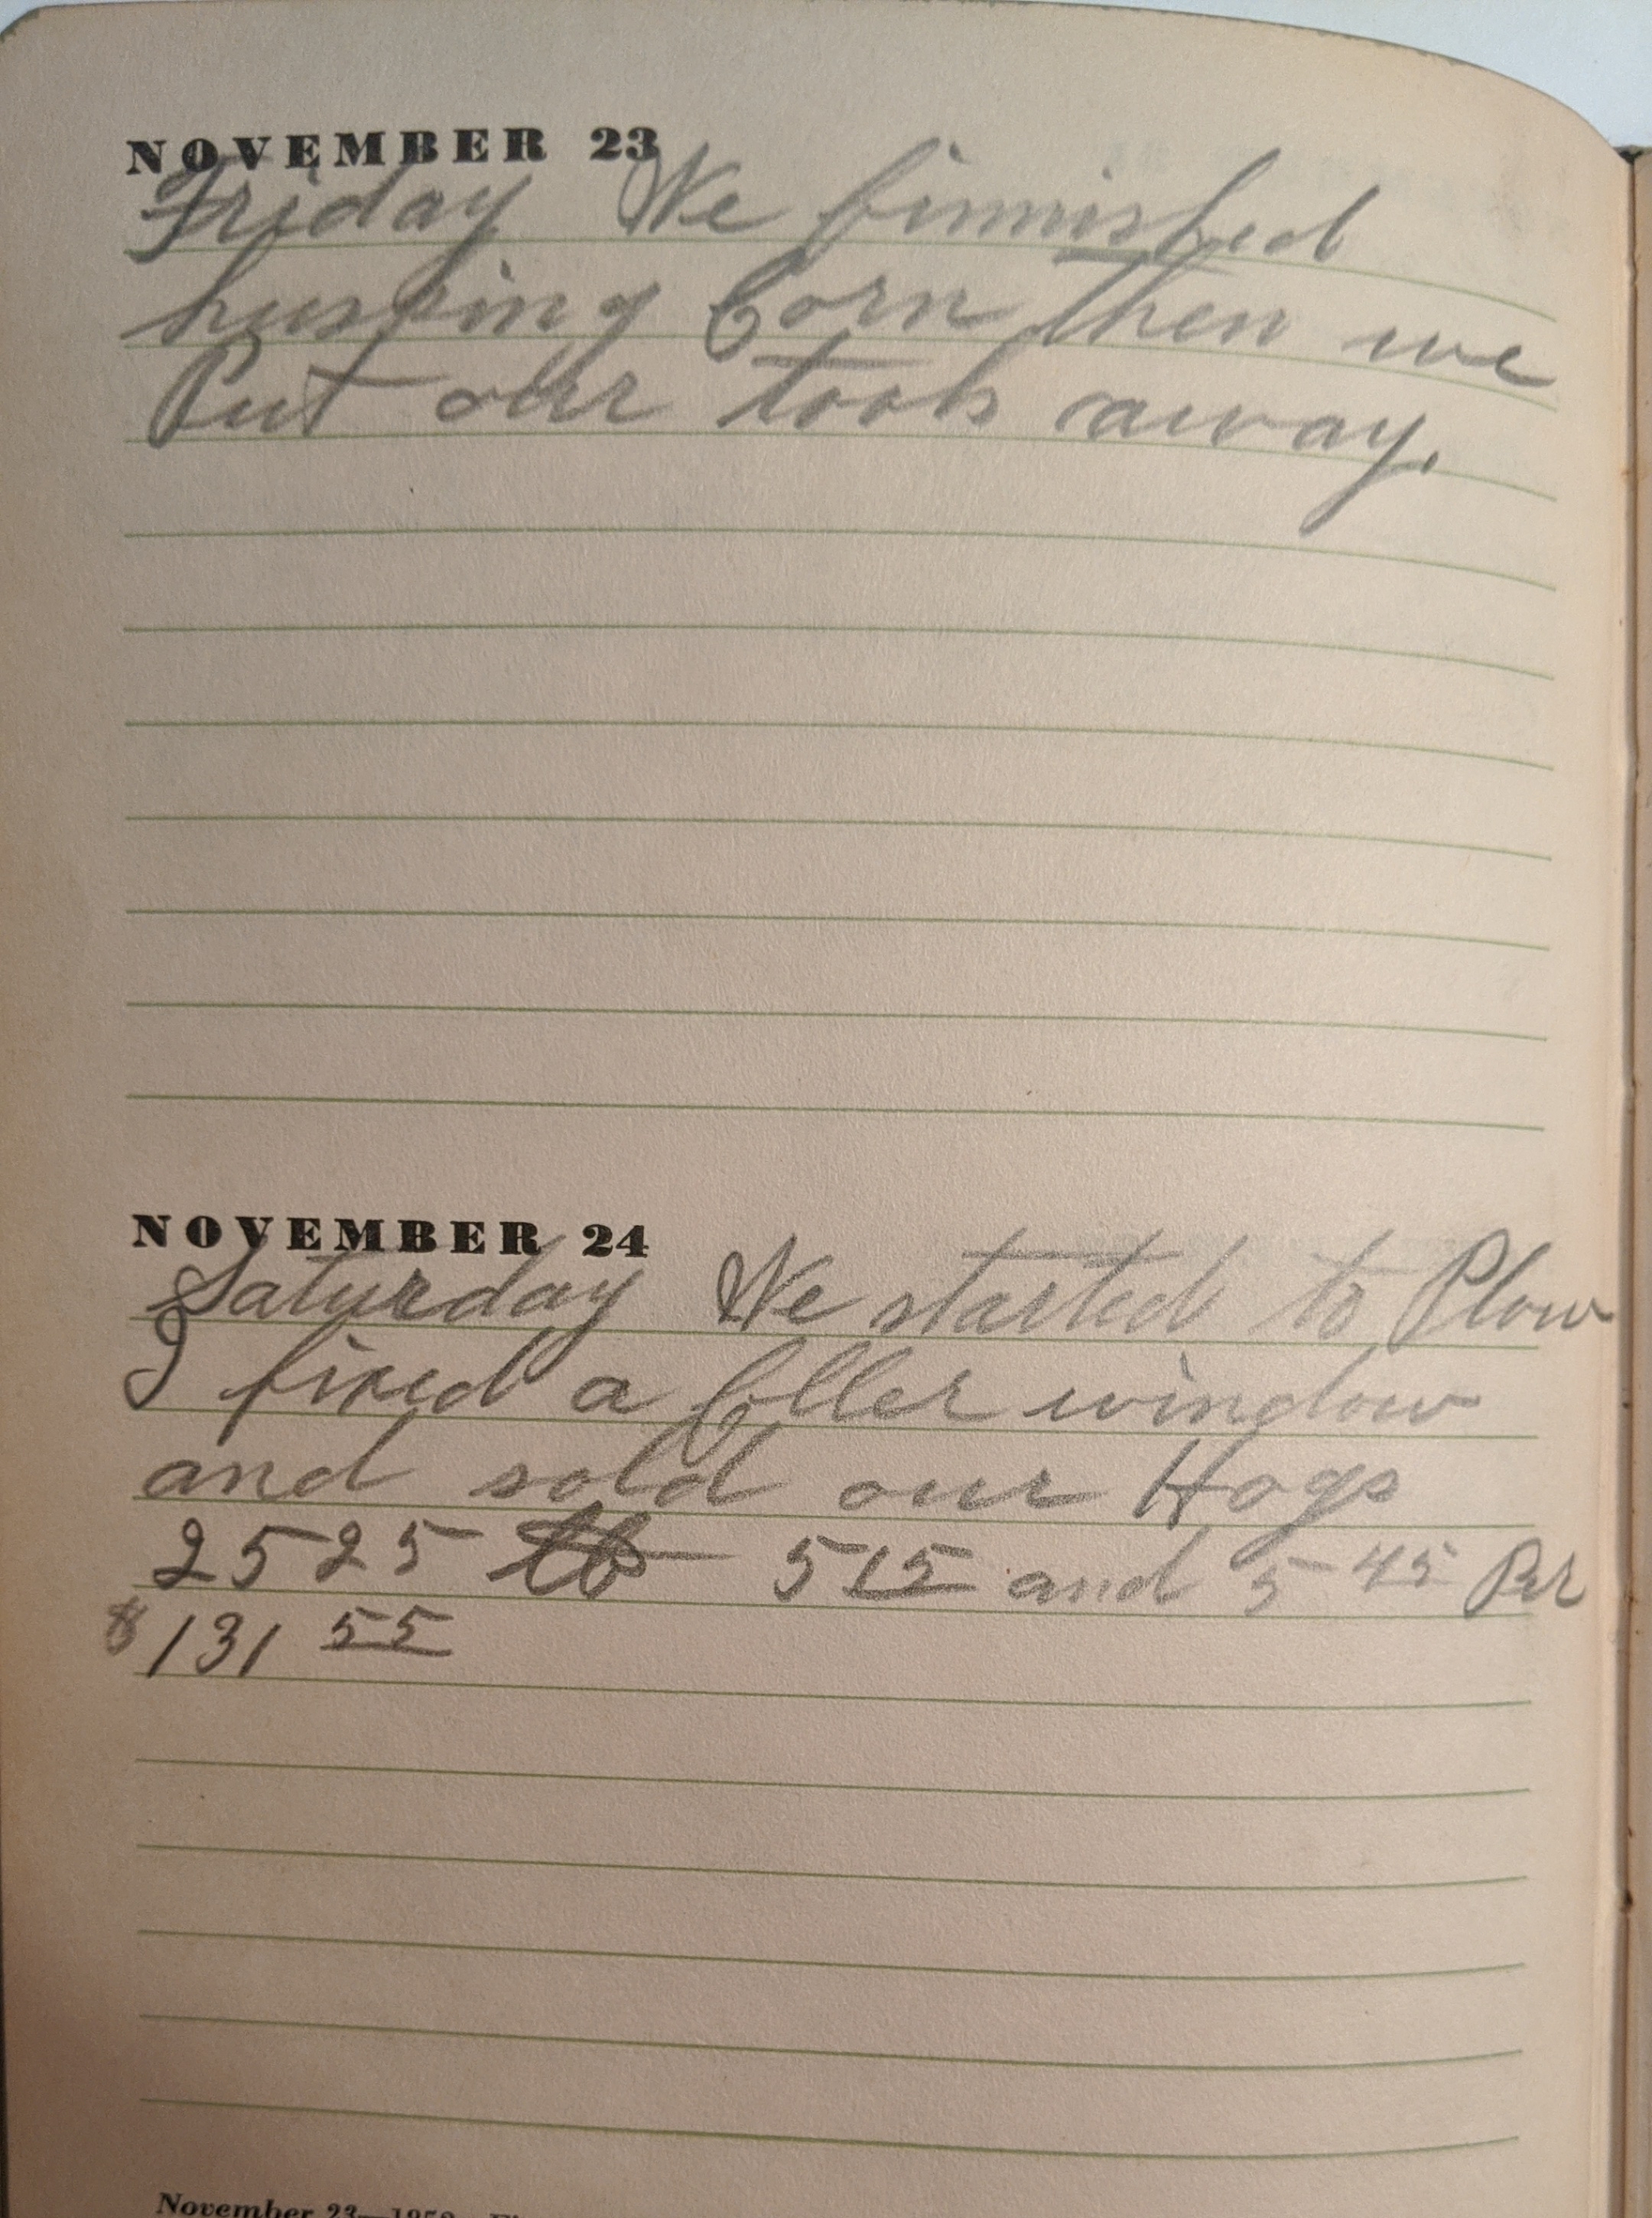 NOVEMBER 23
Friday We finnished
husking Corn then we
Put our tools away.
NOVEMBER 24
Saturday We started to Plow
I fixed a Celler window
and sold our Hogs
2525 lb 5 15 and 5 45 Per
$131 55
November 23—1852